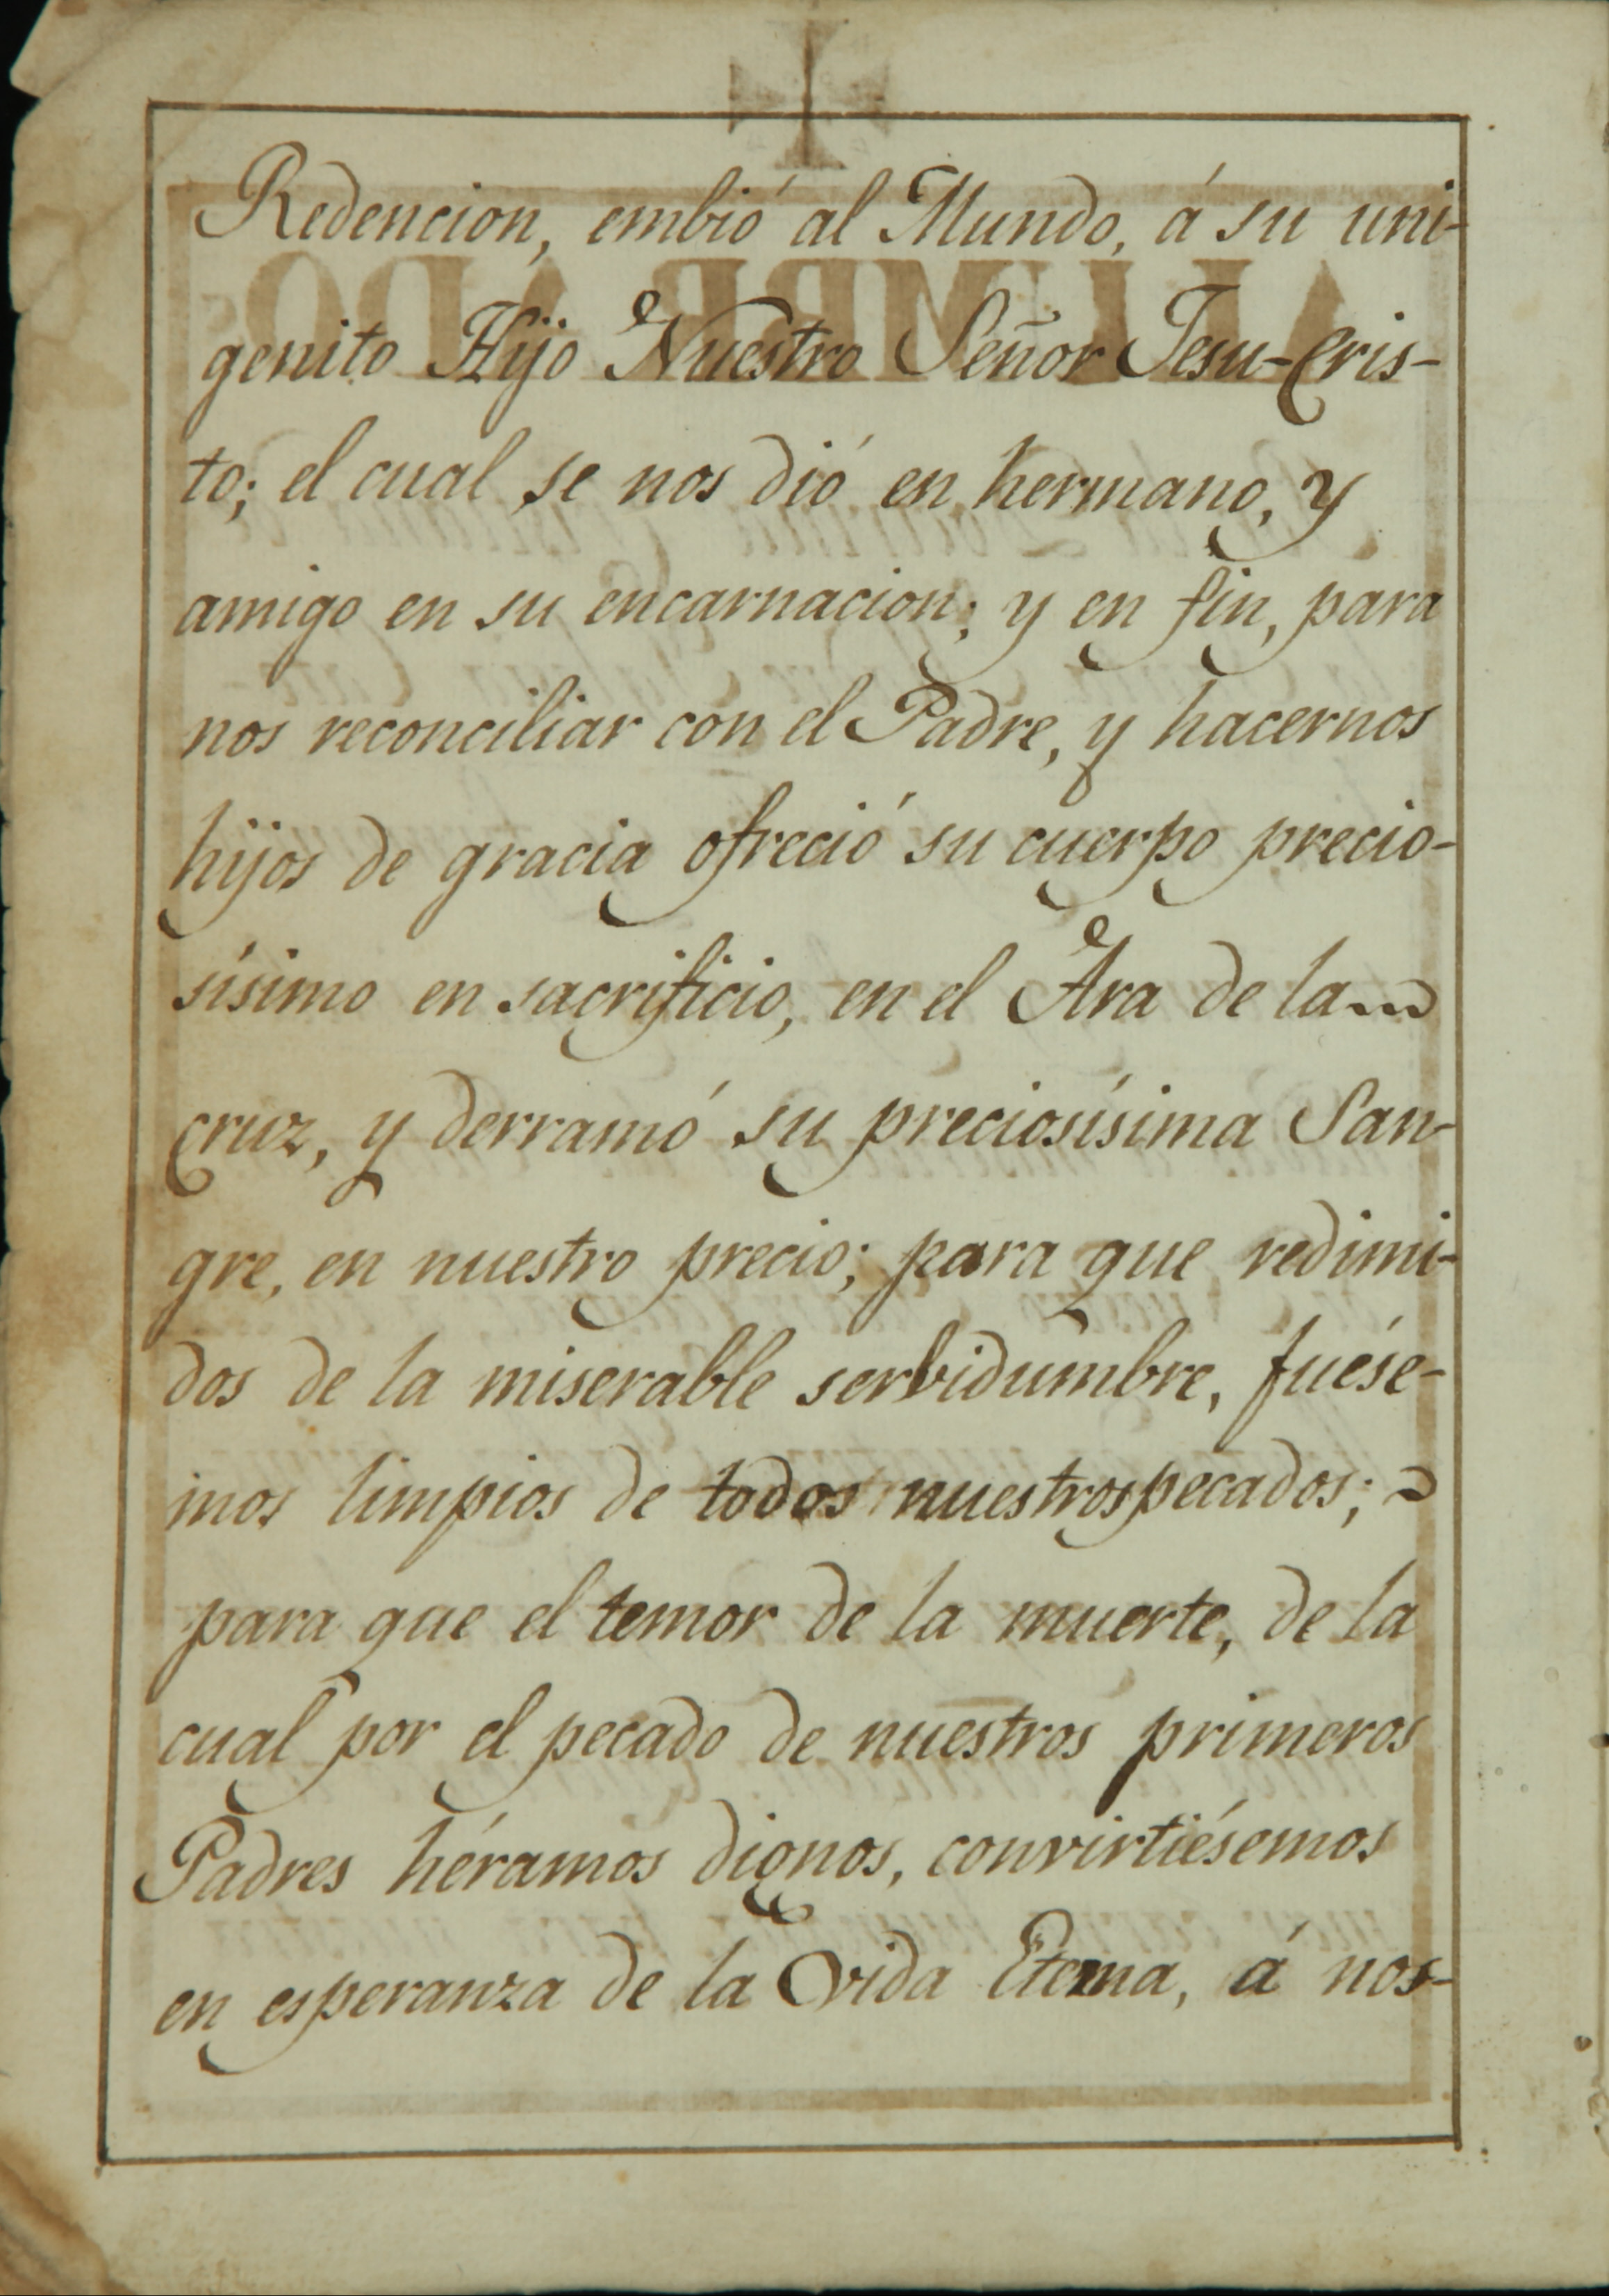 Redencion, embió al Mundo, á su uni-
genito Hijo Nuestro Señor Jesu-Cris-
to; el cual se nos dió en hermano, y
amigo en su encarnacion; y en fin, para
nos reconciliar con el Padre, y hacernos
hijos de gracia ofreció su cuerpo precio-
sísimo en sacrificio, en el Ara de la
cruz, y derramó su preciosísima San-
gre, en nuestro precio; para que redimi-
dos de la miserable serbidumbre, fuése-
mos limpios de todos nuestros pecados;
para que el temor de la muerte, de la
cual por el pecado de nuestros primeros
Padres héramos dignos, convirtiésemos
en esperanza de la Vida Eterna, á nos-